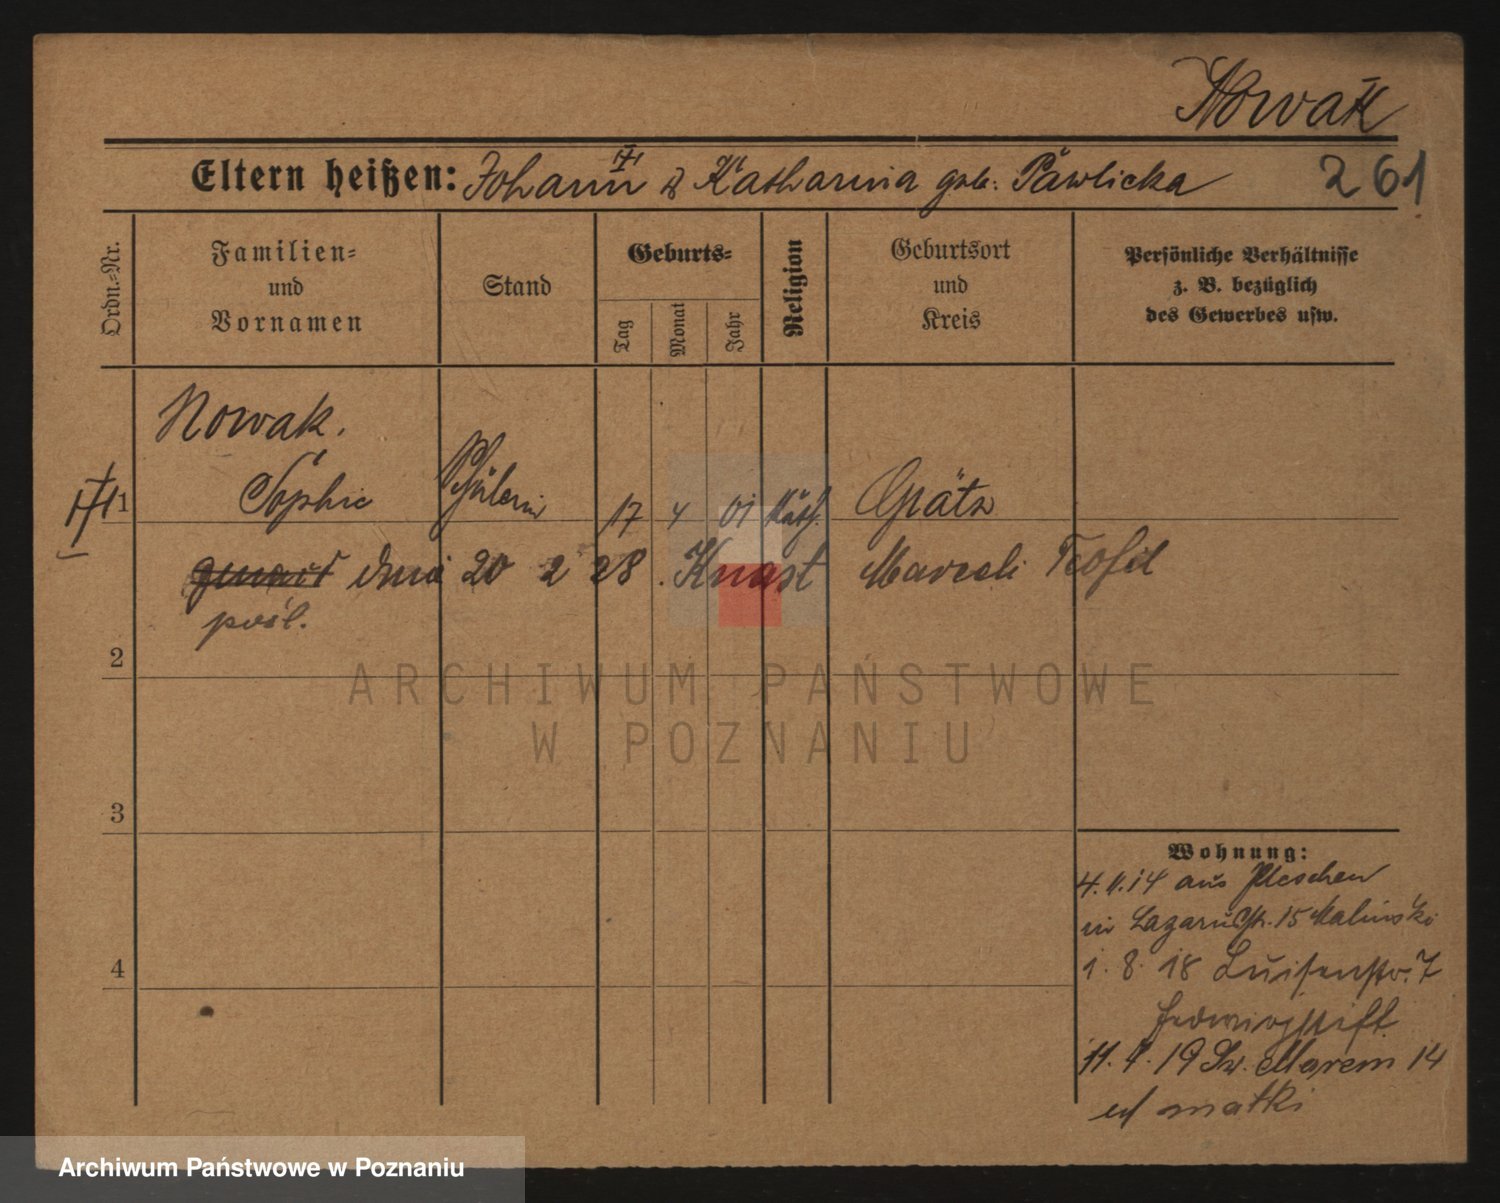 Nowak
Eltern heißen: Johann & Katharina geb: Pawlicka 261
Ordn.=Nr.
Familien=
und
Vornamen
Stand
Geburts=
Tag
Monat
Jahr
Religion
Geburtsort
und
Kreis
Persönliche Verhältnisse
z. B. bezüglich
des Gewerbes usw.
Nowak.
1 Sophie Schülerin 17 4 01 kath. Grätz
dnia 20 2 28. Knast Marceli Teofil
pośl.
2
ARCHIWUM PAŃSTWOWE
W POZNANIU
3
Wohnung:
4. 11. 14 aus Pleschen
in Lazarusstr. 15 Malinski
4
1. 8. 18 Luisenstr. 7
Hedwigstift
11. 9. 19 Św. Marcin 14
matki
Archiwum Państwowe w Poznaniu